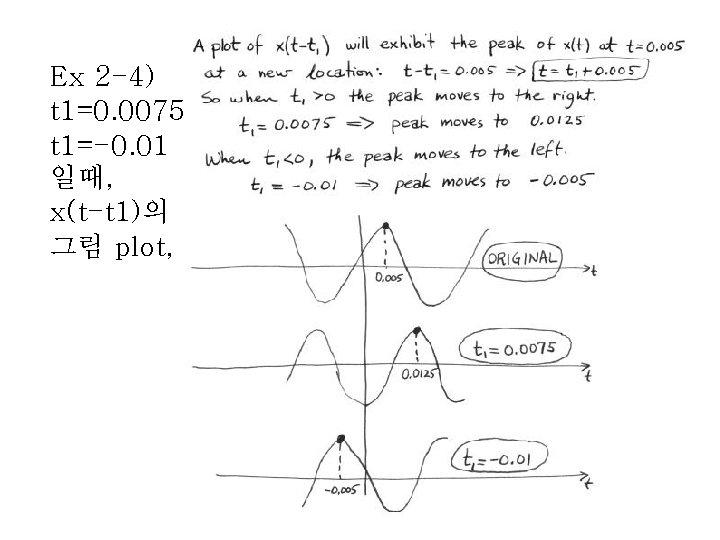 Ex 2-4)
t1=0.0075
t1=-0.01
일때,
x(t-t1)의
그림 plot,
A plot of x(t-t₁) will exhibit the peak of x(t) at t=0.005
at a new location: t-t₁ = 0.005 => t = t₁ + 0.005
So when t₁ >0 the peak moves to the right.
t₁ = 0.0075 => peak moves to 0.0125
When t₁<0, the peak moves to the left.
t₁ = -0.01 => peak moves to -0.005
0.005
ORIGINAL
t
t₁ = 0.0075
0.0125
t
t₁ = -0.01
-0.005
t